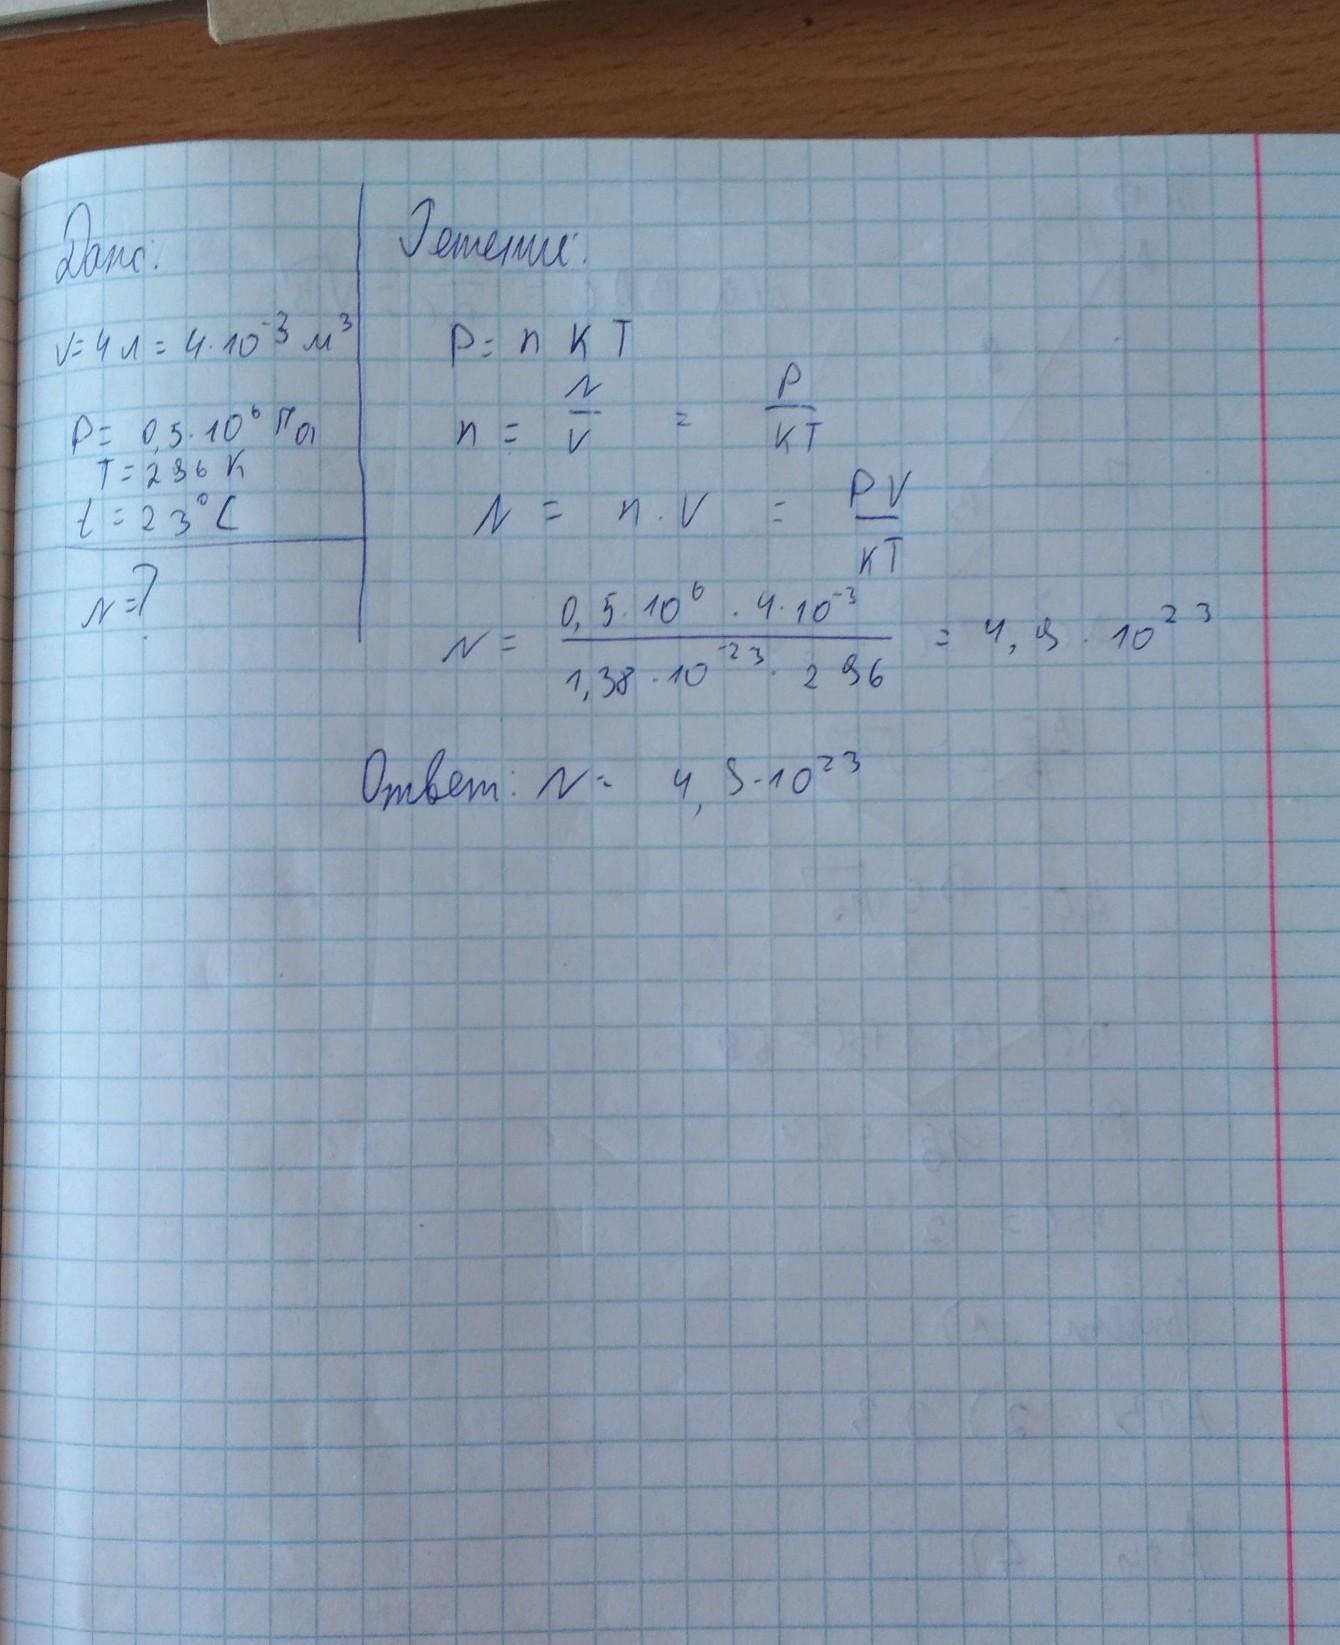 Дано:
V=4л=4·10⁻³ м³
P= 0,5·10⁶ Па
T=296 К
t=23°C
N=?
Решение:
P= n K T
n = N/V = P/KT
N = n·V = PV/KT
N = 0,5·10⁶·4·10⁻³/1,38·10⁻²³·296 = 4,9·10²³
Ответ: N= 4,9·10²³